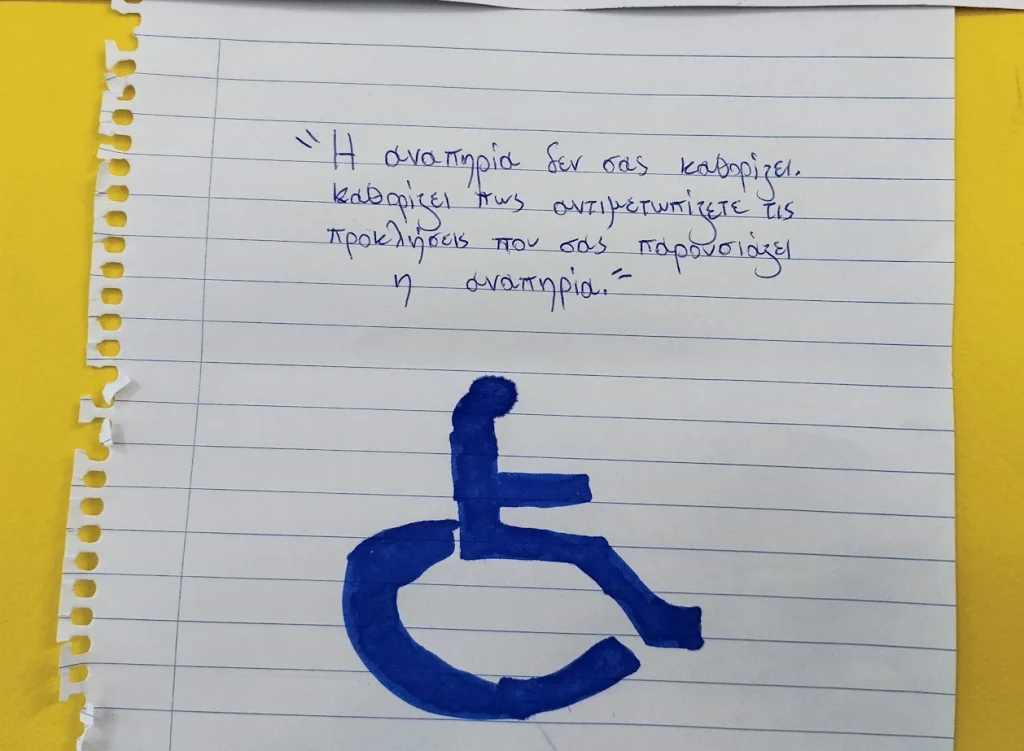 "Η αναπηρία δεν σας καθορίζει.
καθορίζει πως αντιμετωπίζετε τις
προκλήσεις που σας παρουσιάζει
η αναπηρία."